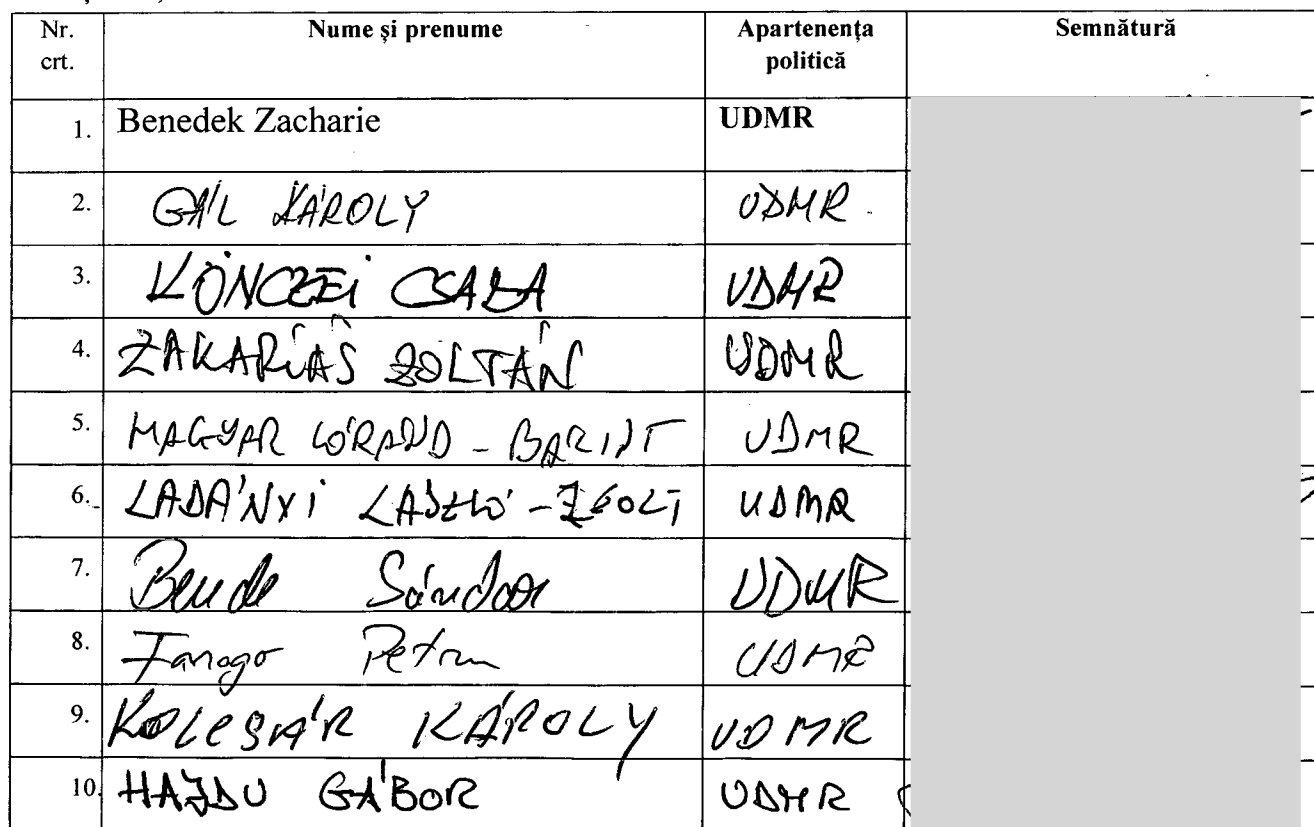 Nr. crt. Nume și prenume Apartenența politică Semnătură
1. Benedek Zacharie UDMR
2. GÁL KÁROLY UDMR
3. KÖNCZEI CSABA UDMR
4. ZAKARIÁS ZOLTÁN UDMR
5. MAGYAR LÓRAND - BÁLINT UDMR
6. LADÁNYI LÁSZLÓ - ZSOLT UDMR
7. Bende Sándor UDMR
8. Petru UDMR
9. KOLCSÁR KÁROLY UDMR
10. HAJDU GÁBOR UDMR